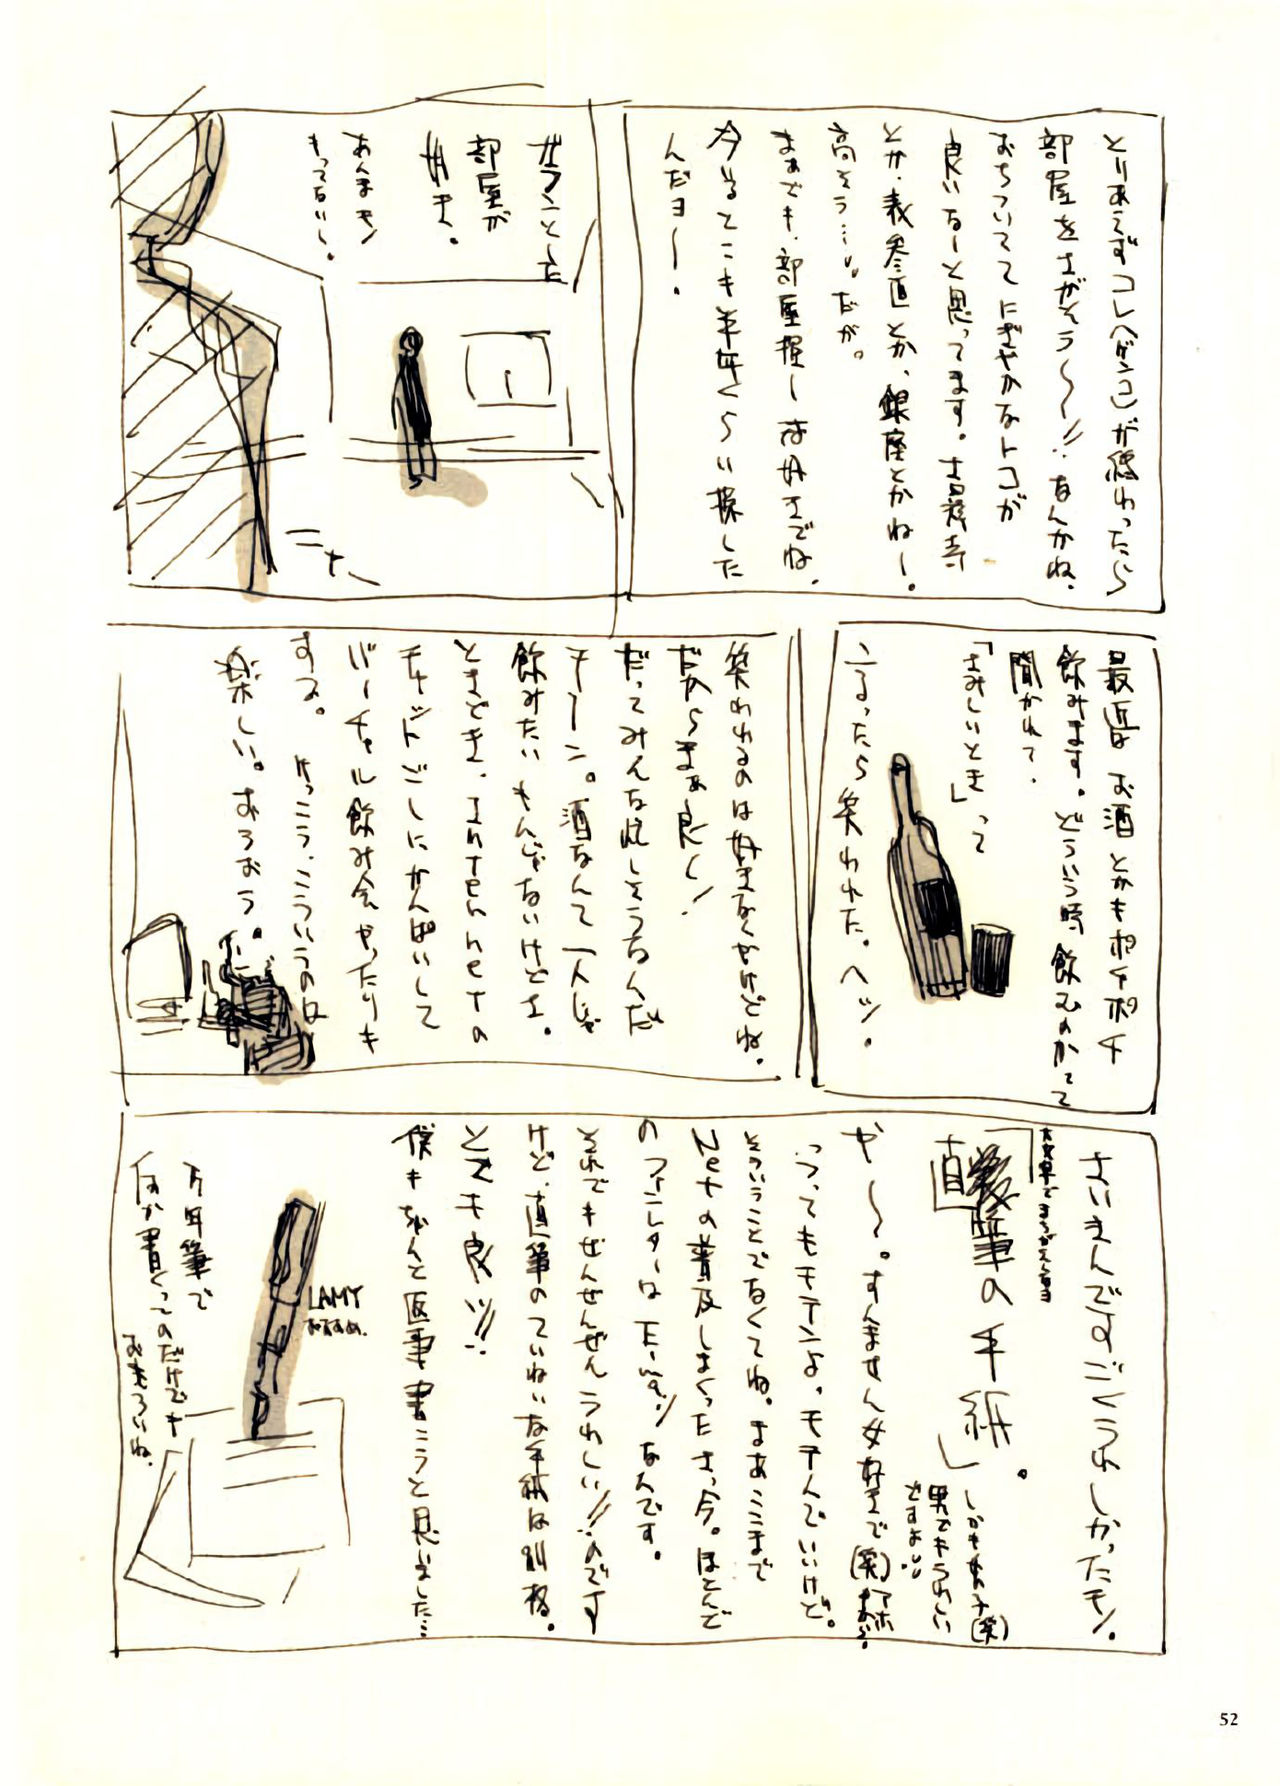 とりあえずコレ(ゲンコ)が終わったら
部屋をさがそう〜!! なんかね、
おちついてて にぎやかなトコが
良いなーと思ってます。吉祥寺
とか、表参道とか、銀座とかねー。
高そう…。だが。
まぁでも、部屋探しは好きでね、
今いるとこも半年くらい探した
んだヨー。
ガランとした
部屋が
好き。
あんまモノ
もってないし。
最近は お酒とかもポチポチ
飲みます。どういう時 飲むのかって
聞かれて、
「さみしいとき」って
言ったら笑われた。ヘッ。
笑われるのは好きなんだけどね。
だからまぁ良し!
だってみんな忙しそうなんだ
モーン。酒なんて一人じゃ
飲みたいもんじゃないけどさ。
ときどき、Internetの
チャットごしにかんぱいして
バーチャル飲み会やったりも
する。 けっこう、こういうのは
楽しい。おろおう。
さいきんですごくうれしかったモノ。
「直筆の手紙」。
しかも女の子(笑)
男でもうれしい
ですよ!!
や〜。すんません女好きで(笑)
っつってもモテンよ。モテんでいいけど。
そういうことでなくてね。まあここまで
Netの普及しまくったさっ今。ほとんど
のファンレターは なんです。
それでもぜんぜんぜんうれしい!!のです
けど、直筆のていねいな手紙は別格。
とても良いッ!!
僕もちゃんと返事書こうと思いました…
LAMY
おすすめ。
万年筆で
何か書くってのだけでも
おもろいね。
52